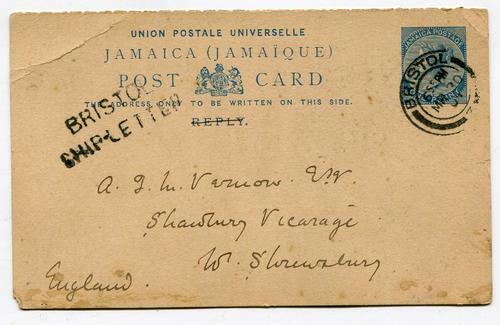 UNION POSTALE UNIVERSELLE
JAMAICA (JAMAÏQUE)
POST CARD
THE ADDRESS ONLY TO BE WRITTEN ON THIS SIDE.
REPLY.
JAMAICA POSTAGE
BRISTOL
BRISTOL
SHIP-LETTER
A. J. M. Vernon Esq.
Shawbury Vicarage
W. Shrewsbury
England.